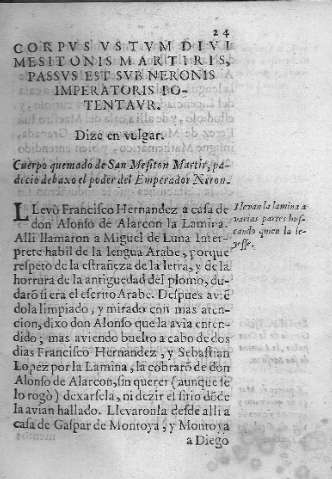 24
CORPVS VSTVM DIVI
MESITONIS MARTIRIS,
PASSVS EST SVB NERONIS
IMPERATORIS PO-
TENTATV.
Dize en vulgar.
Cuerpo quemado de San Mesiton Martir, pa-
dicio debaxo el poder del Emperador Neron.
LLevò Francisco Hernandez a casa de
don Alonso de Alarcon la Lamina.
Alli llamaron a Miguel de Luna Inter-
prete habil de la lengua Arabe, y porque
respeto de la estrañeza de la letra, y de la
horrura de la antiguedad del plomo, du-
darõ si era el escrito Arabe. Despues aviẽ
dola limpiado, y mirado con mas aten-
cion, dixo don Alonso que la avia enten-
dido; mas aviendo buelto a cabo de dos
dias Francisco Hernandez, y Sebastian
Lopez por la Lamina, la cobrarõ de don
Alonso de Alarcon, sin querer (aunque se
lo rogò) dexarsela, ni dezir el sitio dõde
la avian hallado. Llevaronla desde alli a
casa de Gaspar de Montoya, y Montoya
a Diego
Llevan la lamina a
varias partes bus-
cando quien la le-
yesse.